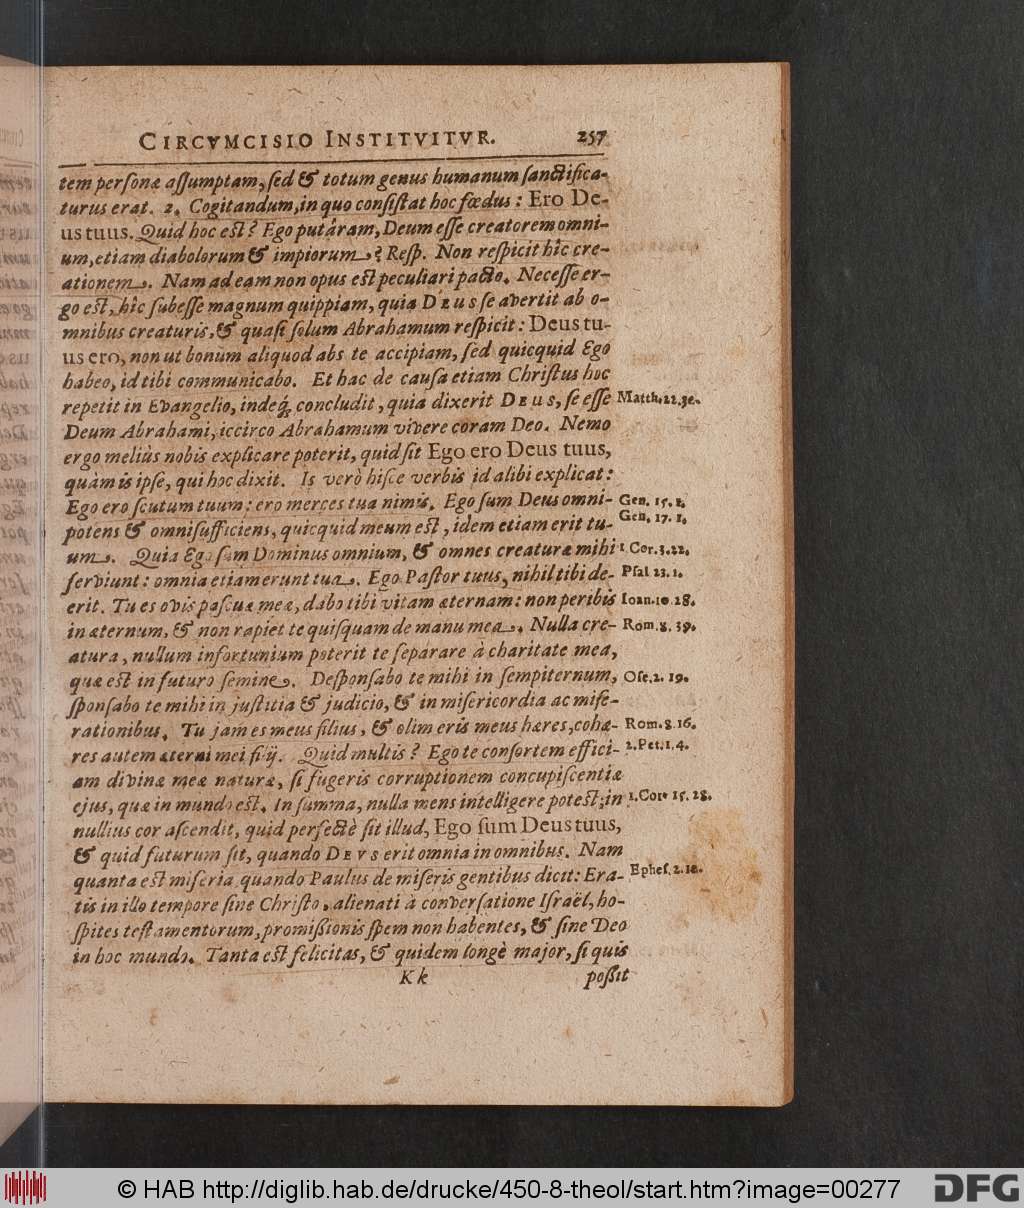 CIRCVMCISIO INSTITVITVR. 257
tem personæ assumptam, sed & totum genus humanum sanctifica-
turus erat. 2. Cogitandum, in quo consistat hoc fœdus: Ero De-
us tuus. Quid hoc est? Ego putâram, Deum esse creatorem omni-
um, etiam diabolorum & impiorum? Resp. Non respicit hîc cre-
ationem. Nam ad eam non opus est peculiari pacto. Necesse er-
go est, hîc subesse magnum quippiam, quia DEUS se avertit ab o-
mnibus creaturis, & quasi solum Abrahamum respicit: Deus tu-
us ero, non ut bonum aliquod abs te accipiam, sed quicquid Ego
habeo, id tibi communicabo. Et hac de causa etiam Christus hoc
repetit in Evangelio, indeq́; concludit, quia dixerit DEUS, se esse Matth. 22. 32.
Deum Abrahami, iccirco Abrahamum vivere coram Deo. Nemo
ergo meliùs nobis explicare poterit, quid sit Ego ero Deus tuus,
quàm is ipse, qui hoc dixit. Is verò hisce verbis id alibi explicat:
Ego ero scutum tuum: ero merces tua nimis. Ego sum Deus omni- Gen. 15. 1.
potens & omnisufficiens, quicquid meum est, idem etiam erit tu- Gen. 17. 1.
um. Quia Ego sum Dominus omnium, & omnes creaturæ mihi 1 Cor. 3. 22.
serviunt: omnia etiam erunt tua. Ego Pastor tuus, nihil tibi de- Psal 23. 1.
erit. Tu es ovis pascuæ meæ, dabo tibi vitam æternam: non peribis Ioan. 10 28.
in æternum, & non rapiet te quisquam de manu mea. Nulla cre- Rom. 8. 39.
atura, nullum infortunium poterit te separare à charitate mea,
quæ est in futuro semine. Desponsabo te mihi in sempiternum, Ose. 2. 19.
sponsabo te mihi in justitia & judicio, & in misericordia ac mise-
rationibus. Tu jam es meus filius, & olim eris meus hæres, cohæ- Rom. 8. 16.
res autem æterni mei filij. Quid multis? Ego te consortem effici- 2. Pet. 1. 4.
am divinæ meæ naturæ, si fugeris corruptionem concupiscentiæ
ejus, quæ in mundo est. In summa, nulla mens intelligere potest; in 1. Cor. 15. 28.
nullius cor ascendit, quid perfectè sit illud, Ego sum Deus tuus,
& quid futurum sit, quando DEVS erit omnia in omnibus. Nam
quanta est miseria, quando Paulus de miseris gentibus dicit: Era- Ephes. 2. 12.
tis in illo tempore sine Christo, alienati à conversatione Israël, ho-
spites testamentorum, promißionis spem non habentes, & sine Deo
in hoc mundo. Tanta est felicitas, & quidem longè major, si quis
Kk poßit
© HAB http://diglib.hab.de/drucke/450-8-theol/start.htm?image=00277 DFG